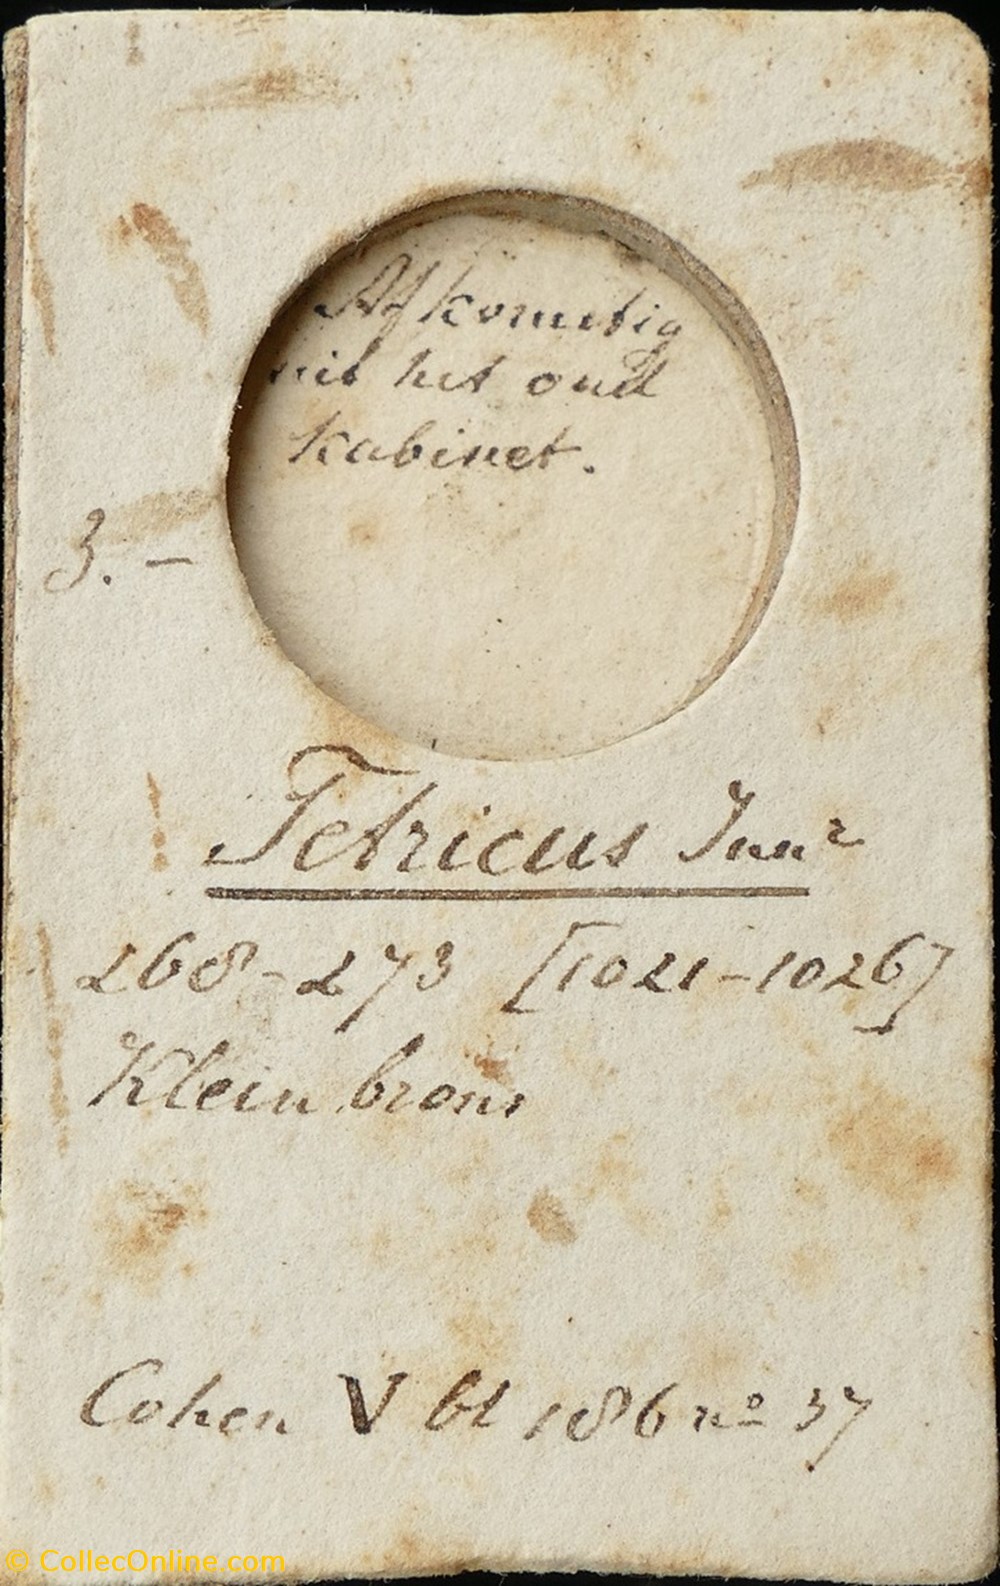 Afkomstig
uit het oud
kabinet.
3. –
Tetricus Junr
268-273 [1021-1026]
Klein brons
Cohen V bl 186 no 37
© CollecOnline.com